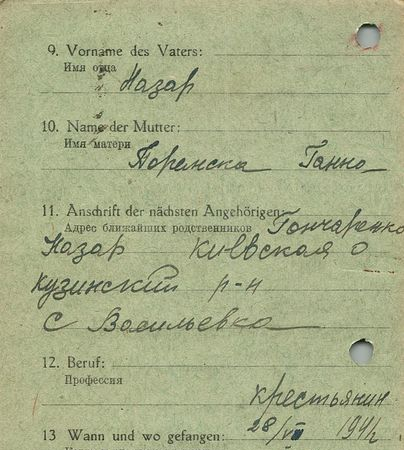 9. Vorname des Vaters:
Имя отца
Назар
10. Name der Mutter:
Имя матери
Поремска Ганна
11. Anschrift der nächsten Angehörigen:
Адрес ближайших родственников Гончаренко
Назар Киевская о
Кузинский р-н
с Васильевка
12. Beruf:
Профессия
крестьянин
13 Wann und wo gefangen: 28/VIII 1941